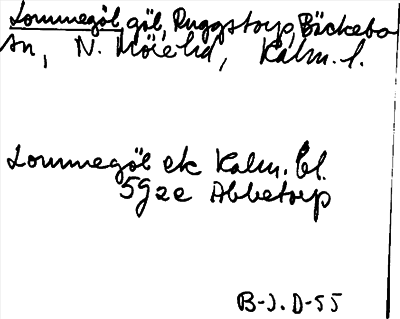 Lommegöl, göl, Ruggstorp, Bäckebo
sn, N. Möre hd, Kalm. l.
Lommegöl ek Kalm. bl.
59 ae Abbetorp
B-J. D-55